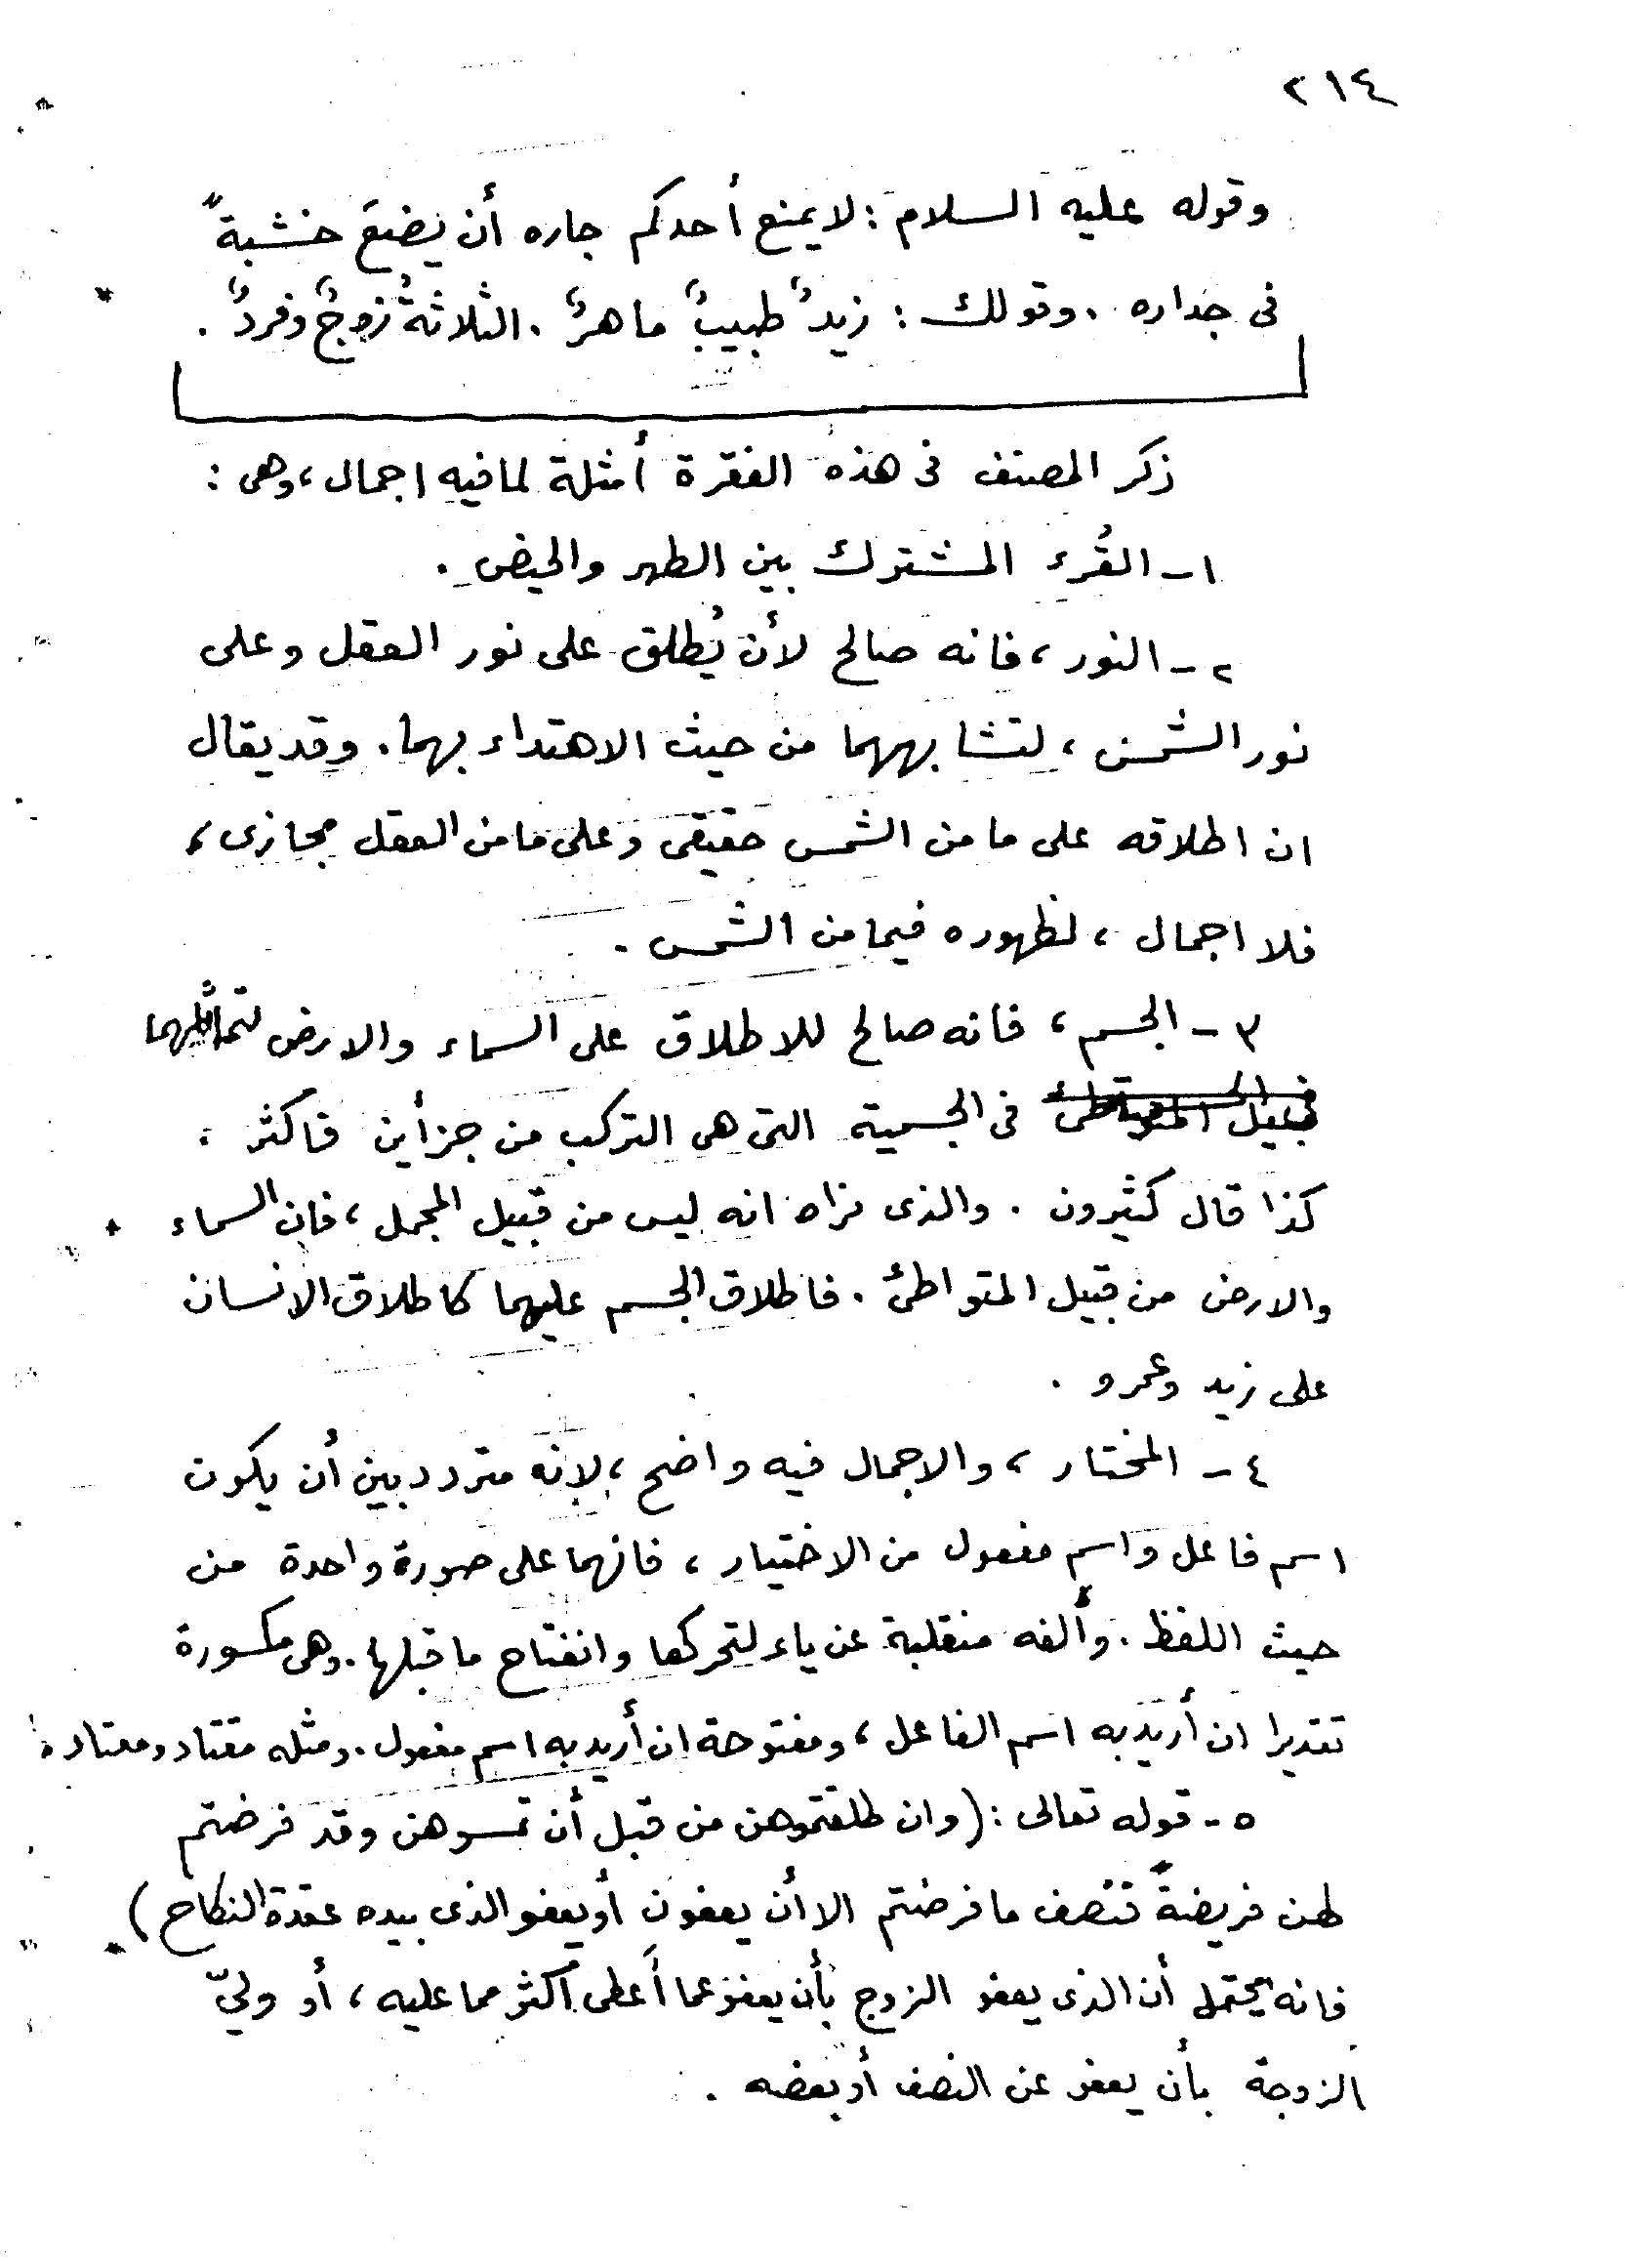 ٢١٤
وقوله عليه السلام : لا يمنع أحدكم جاره أن يضعَ خشبةً
فى جداره . وقولك : زيدٌ طبيبٌ ماهرٌ . الثلاثةُ زوجٌ وفردٌ .
ذكر المصنف فى هذه الفقرة أمثلة لما فيه اجمال ، وهى :
١ - القُرء المشترك بين الطهر والحيض .
٢ - النور ، فانه صالح لأن يُطلق على نور العقل وعلى
نور الشمس ، لتشابههما من حيث الاهتداء بهما . وقد يقال
ان اطلاقه على ما من الشمس حقيقى وعلى ما من العقل مجازى ،
فلا اجمال ، لظهوره فيما من الشمس .
٣ - الجسم ، فانه صالح للاطلاق على السماء والارض لتماثلهما
فى الجسمية التى هى التركب من جزأين فاكثر :
كذا قال كثيرون . والذى نراه انه ليس من قبيل المجمل ، فان السماء
والارض من قبيل المتواطئ . فاطلاق الجسم عليهما كاطلاق الانسان
على زيد وعمرو .
٤ - المختار ، والاجمال فيه واضح ، لانه متردد بين أن يكون
اسم فاعل واسم مفعول من الاختيار ، فانهما على صورة واحدة من
حيث اللفظ . وألفه منقلبة عن ياء لتحركها وانفتاح ما قبلها . وهى مكسورة
تقديرا ان أريد به اسم الفاعل ، ومفتوحة ان أريد به اسم مفعول . ومثله مقتاد ومعتاد :
٥ - قوله تعالى : ( وان طلقتموهن من قبل أن تمسوهن وقد فرضتم
لهن فريضةً فنصف ما فرضتم الا أن يعفون أو يعفو الذى بيده عقدة النكاح ) .
فانه يحتمل أن الذى يعفو الزوج بأن يعفو عما أعطى أكثر مما عليه ، أو وليّ
الزوجة بأن يعفو عن النصف أو بعضه .